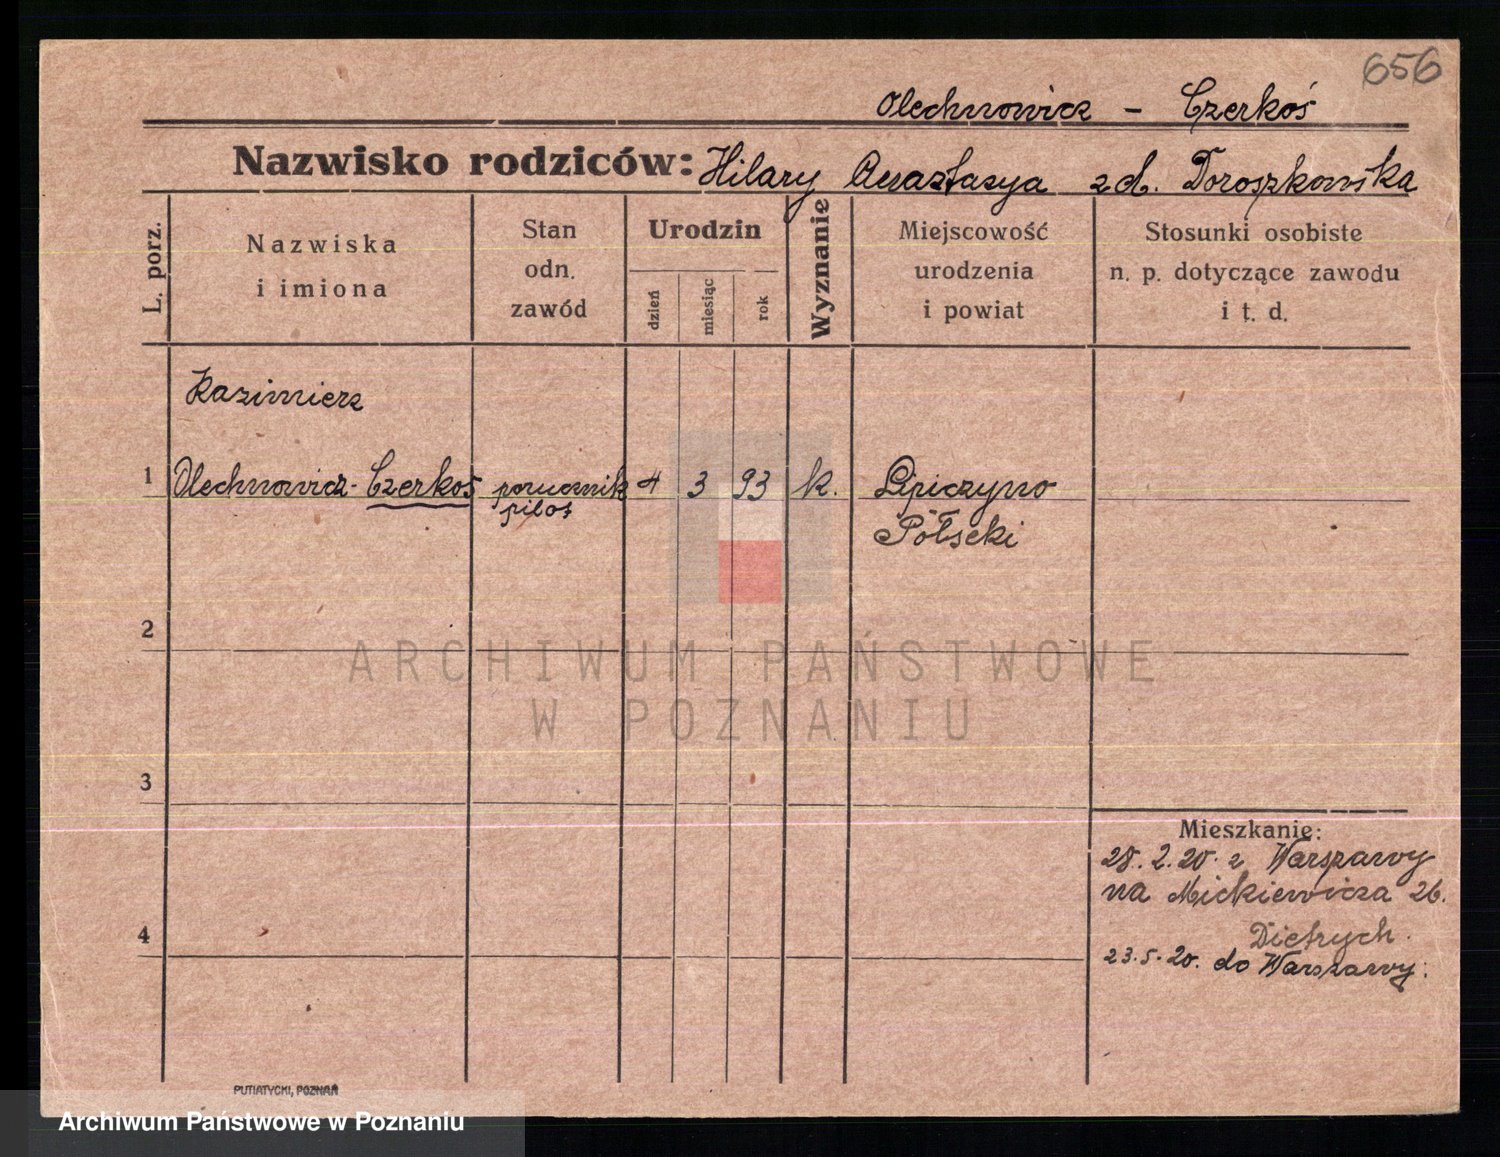 656
Olechnowicz - Czerkoś
Nazwisko rodziców: Hilary Anastasya z d. Doroszkowska
L. porz.
Nazwiska
i imiona
Stan
odn.
zawód
Urodzin
dzień
miesiąc
rok
Wyznanie
Miejscowość
urodzenia
i powiat
Stosunki osobiste
n. p. dotyczące zawodu
i t. d.
Kazimierz
1 Olechnowicz-Czerkoś porucznik 4 3 93 k. Lipiczyno
pilot Połocki
2
ARCHIWUM PAŃSTWOWE
W POZNANIU
3
Mieszkanie:
28. 2. 20. z Warszawy
na Mickiewicza 26.
4
Dietrych.
23. 5. 20. do Warszawy.
PUTIATYCKI, POZNAŃ
Archiwum Państwowe w Poznaniu